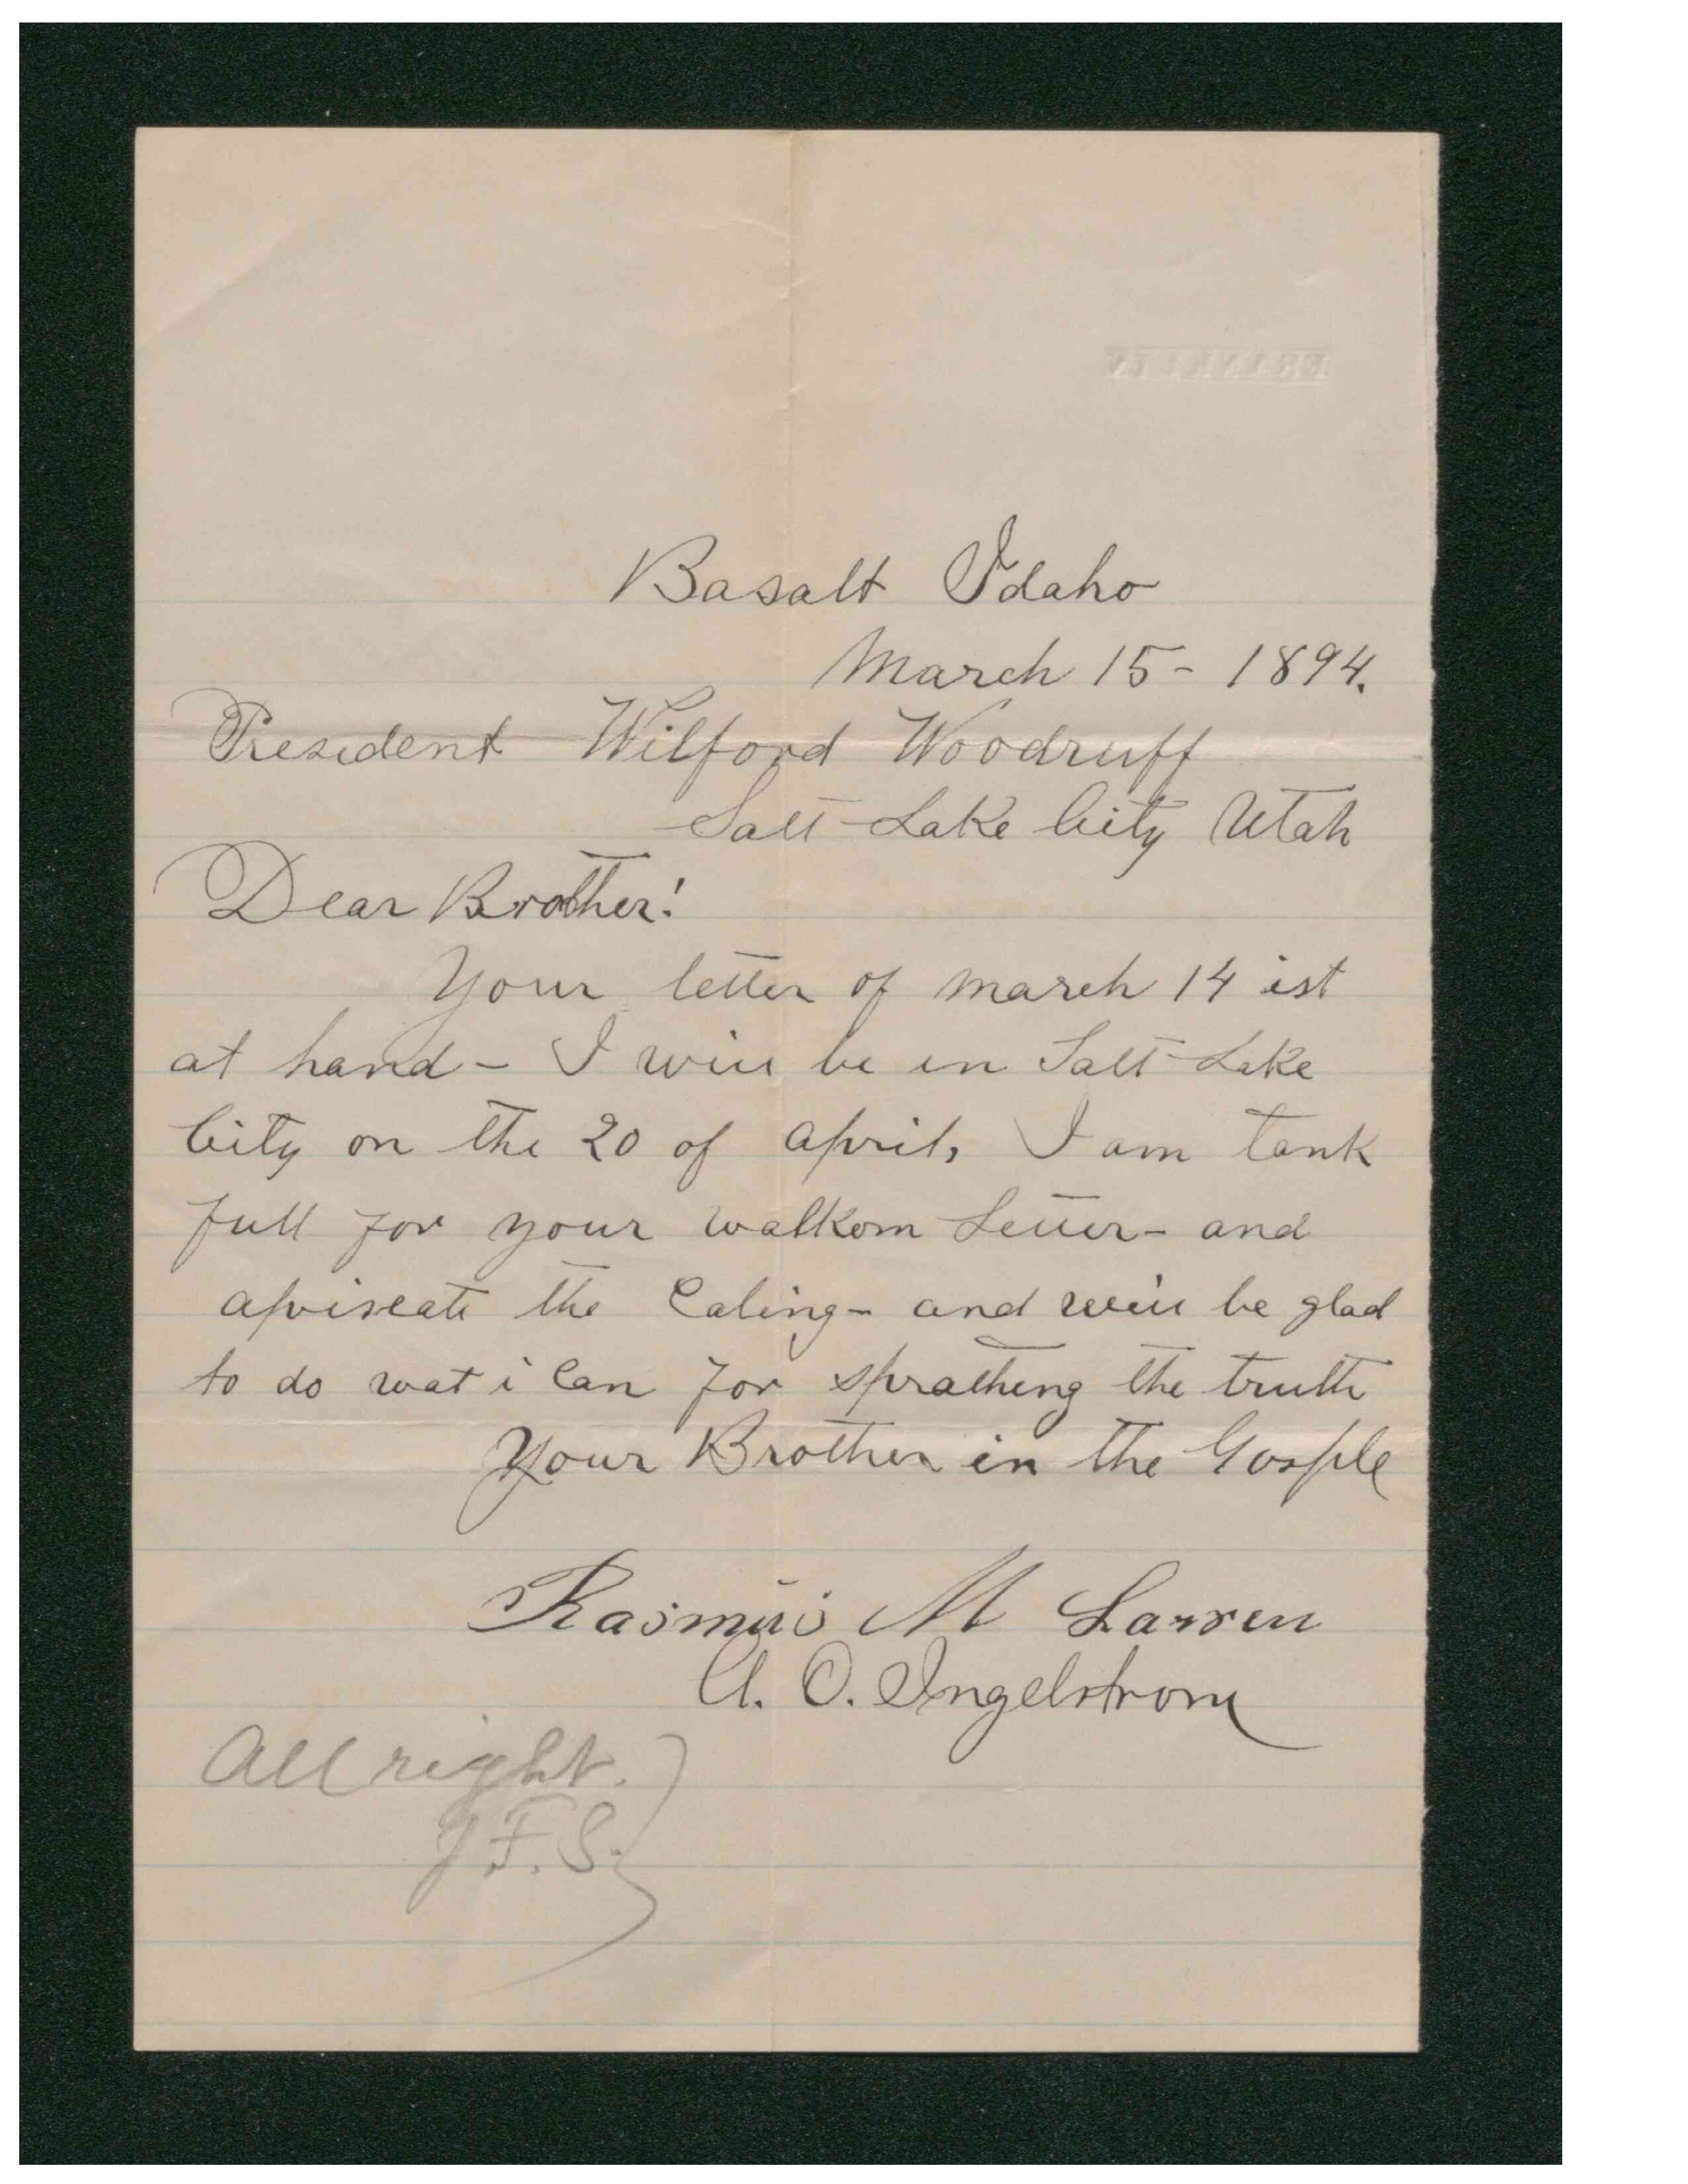 FRANKLIN
Basalt Idaho
March 15- 1894.
President Wilford Woodruff
Salt Lake City Utah
Dear Brother!
Your letter of march 14 ist
at hand- I will be in Salt Lake
City on the 20 of april, I am tank
full for your walkom Letter- and
apriseate the Caling- and will be glad
to do wat i Can for sprathing the truth
Your Brother in the Gosple
Rasmus M Larsen
A. O. Ingelstrom
All right.
J. F. S.